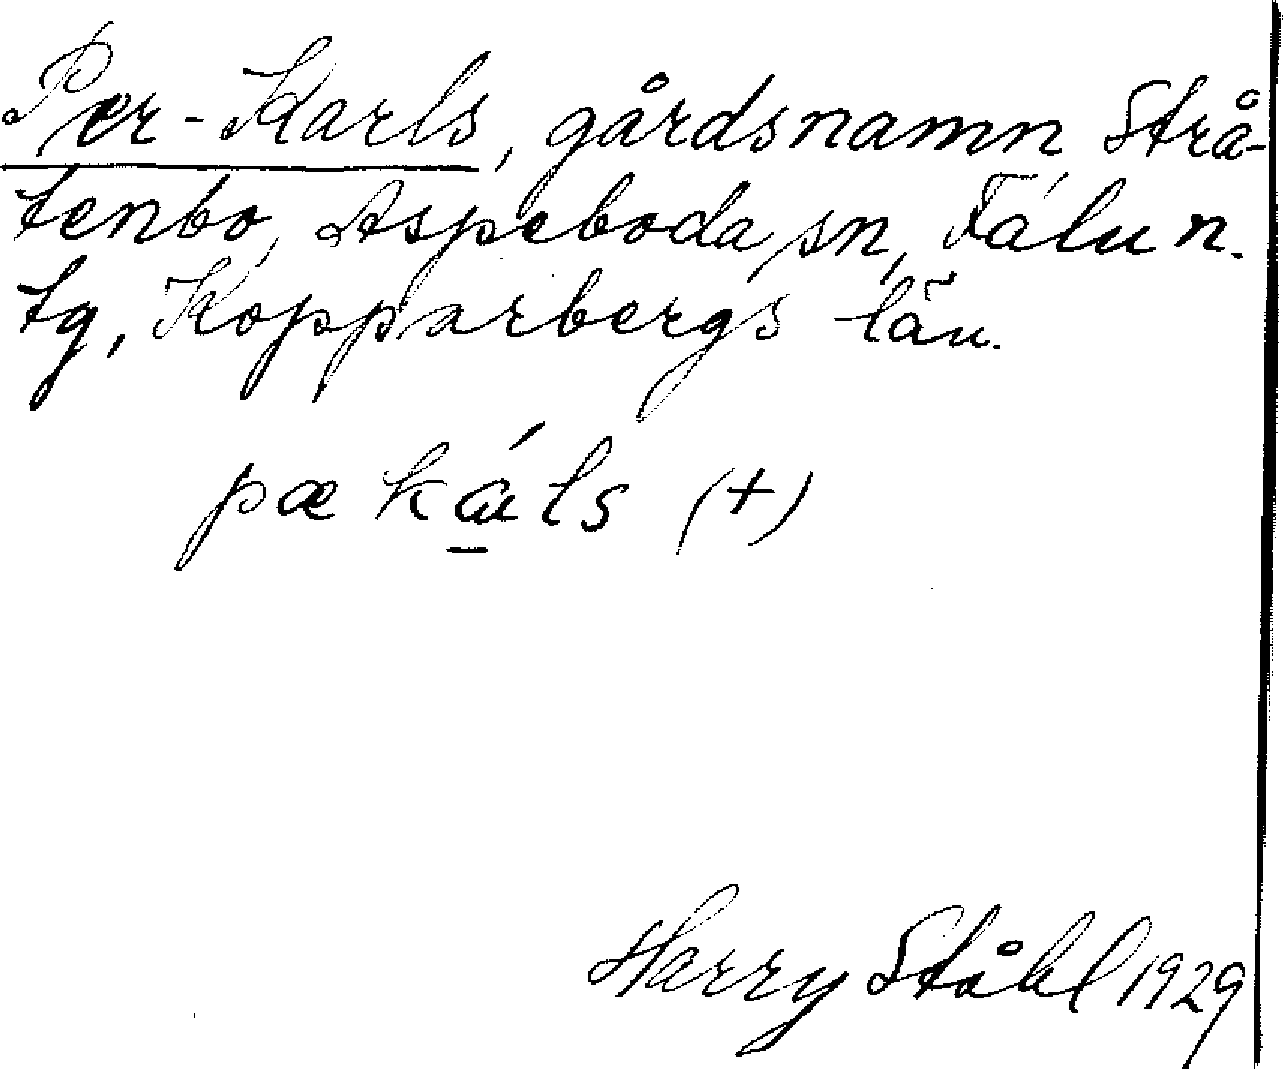 Per-Karls, gårdsnamn Strå-
tenbo, Aspeboda sn, Falun.
tg, Kopparbergs län.
pæ ká̱ls (+)
Harry Ståhl 1929